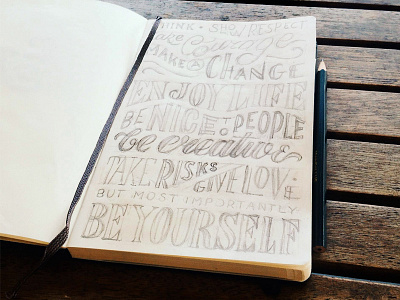 THINK • SHOW RESPECT
take Courage
MAKE A CHANGE
ENJOY LIFE
BE NICE TO PEOPLE
be creative
TAKE RISKS
GIVE LOVE &
BUT MOST IMPORTANTLY
BE YOURSELF